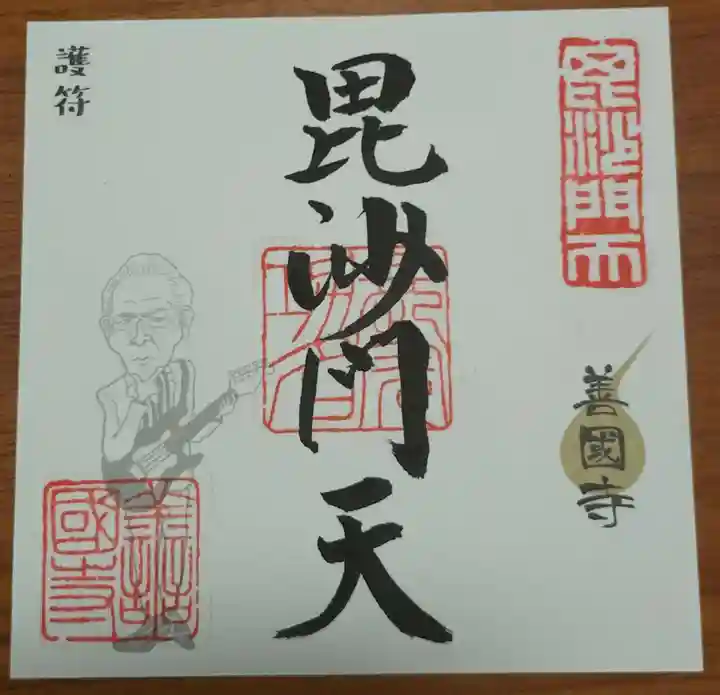 毘沙門天
善國寺
毘沙門天
護符
善國寺